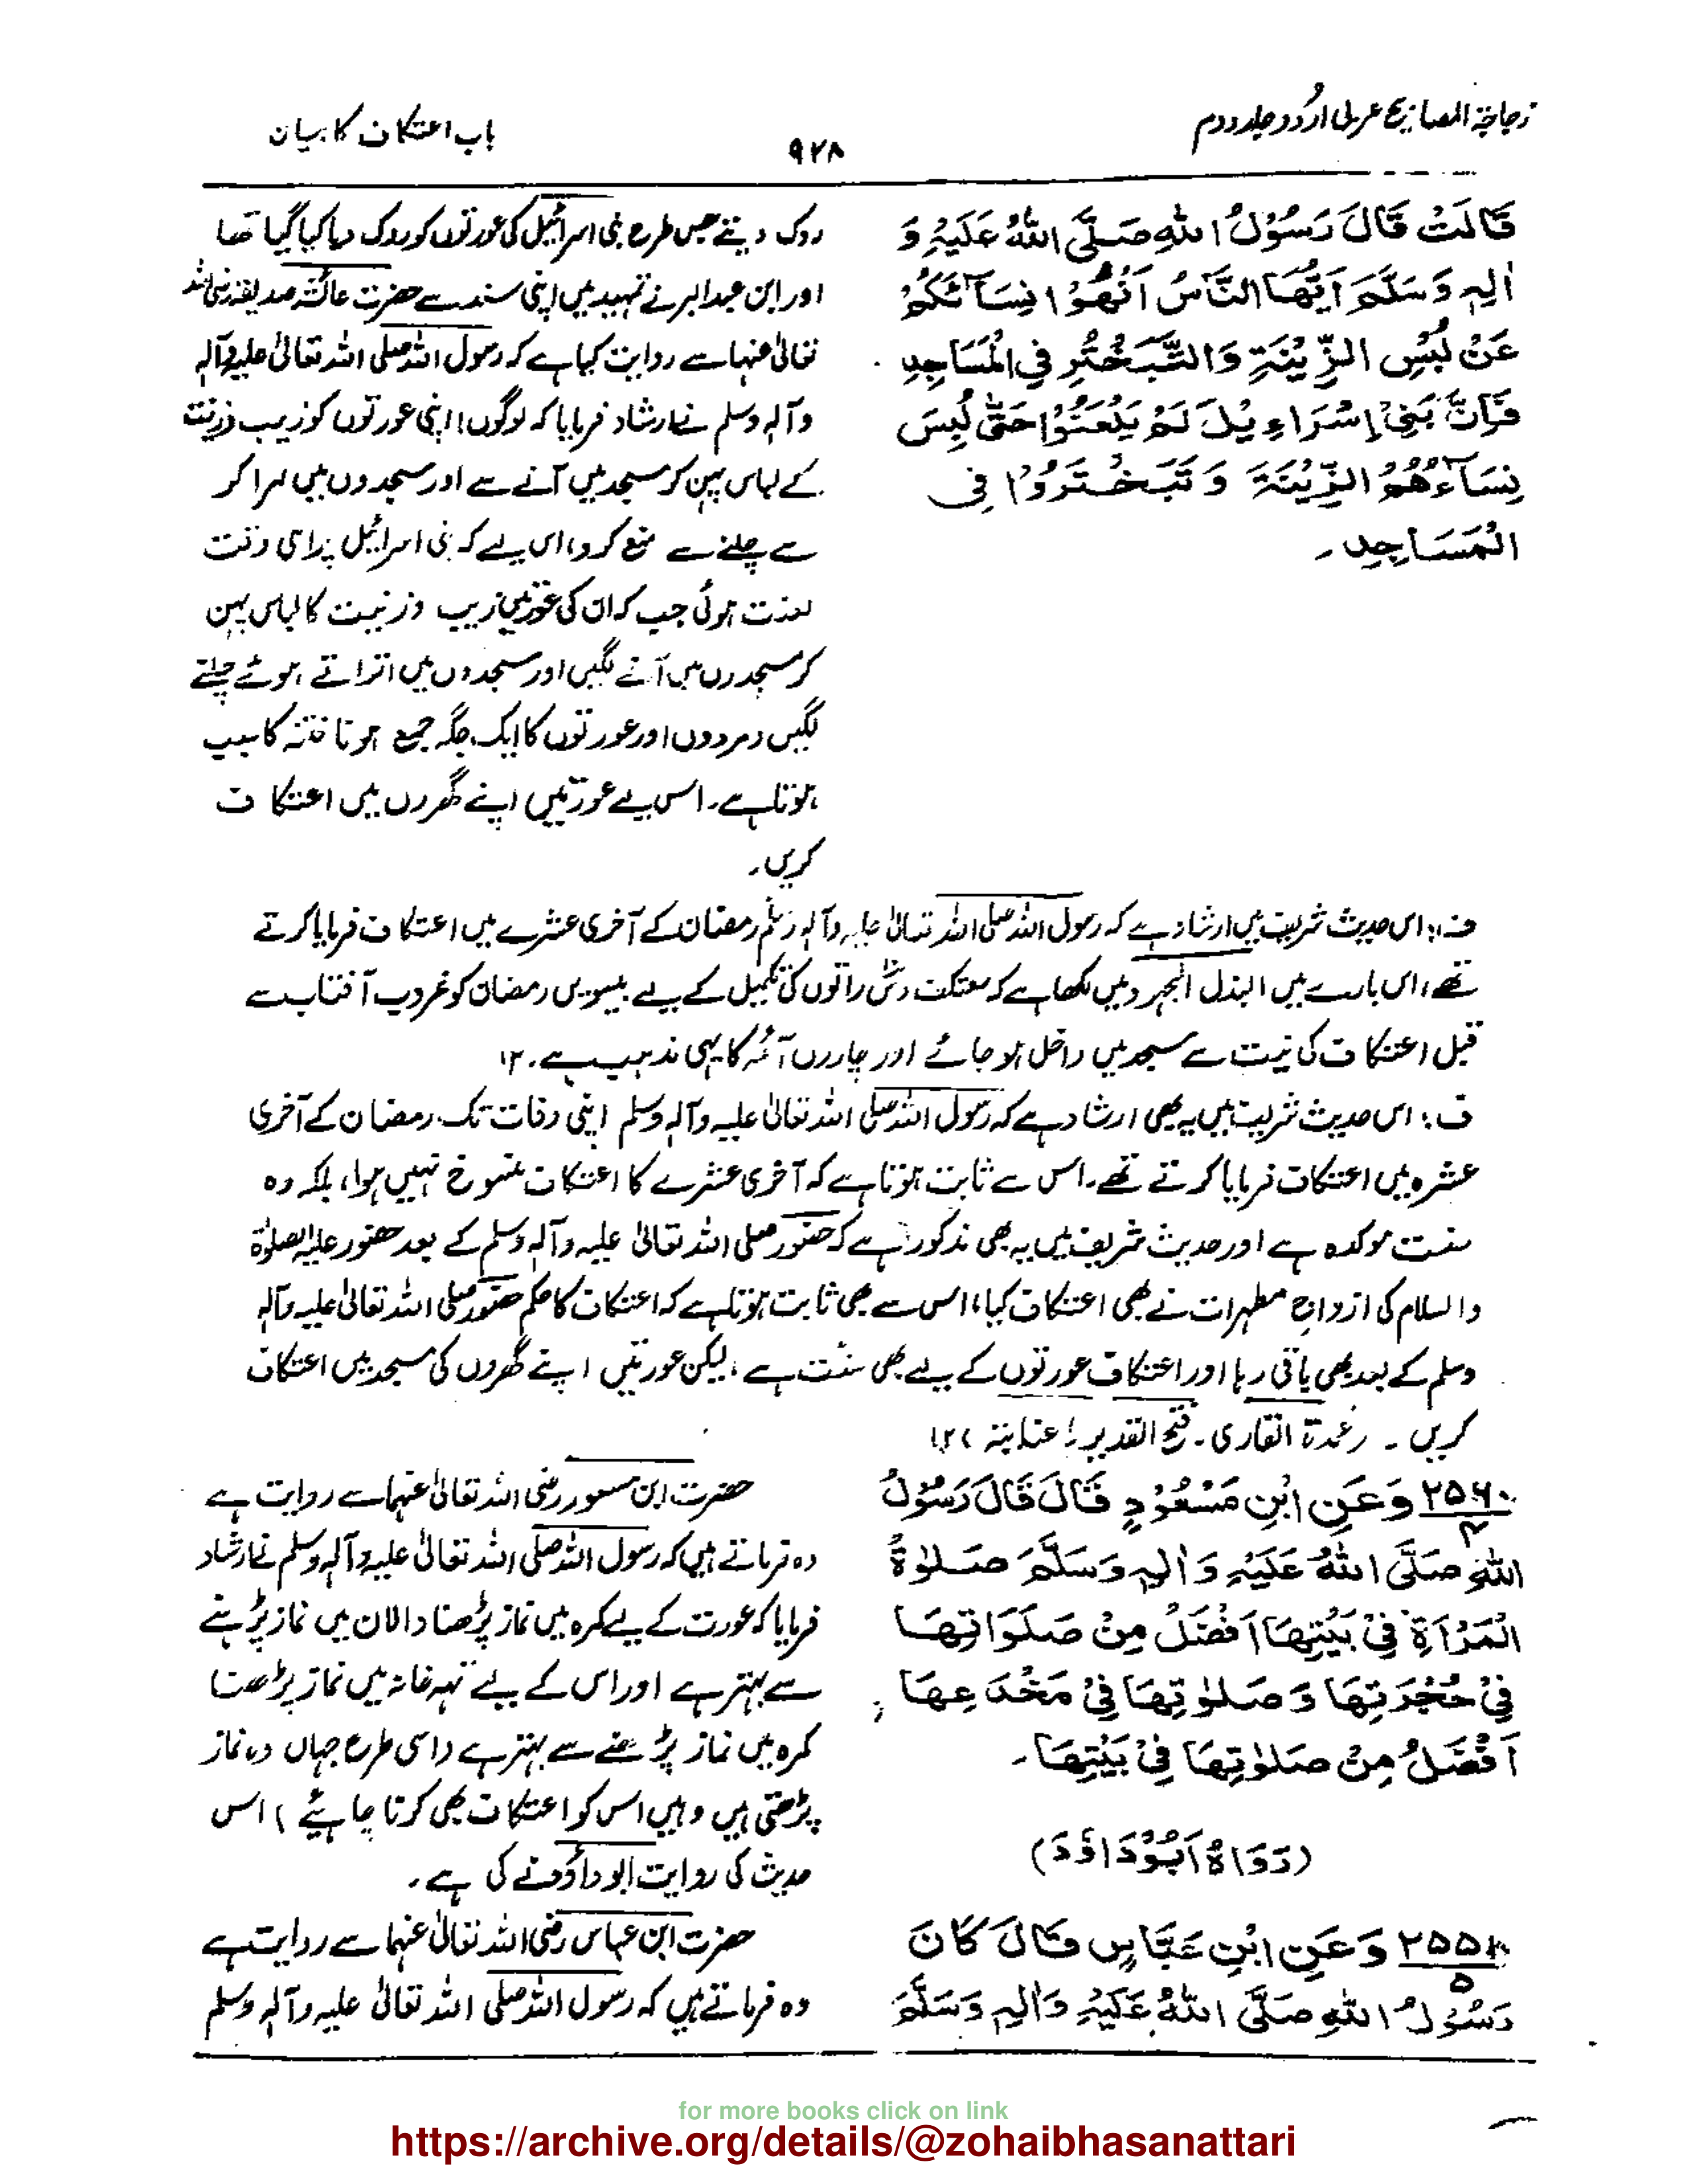 زجاجۃ المصابیح عربی اردو جلد دوم
۹۲۸
باب اعتکاف کا بیان
قَالَتْ قَالَ رَسُوْلُ اللّٰہِ صَلَّی اللّٰہُ عَلَیْہِ وَ
اٰلِہٖ وَسَلَّمَ اَیُّھَا النَّاسُ اَنْھُوْا نِسَآئَکُمْ
عَنْ لُبْسِ الزِّیْنَۃِ وَالتَّبَخْتُرِ فِی الْمَسَاجِدِ
فَاِنَّ بَنِیْ اِسْرَاءِیْلَ لَمْ یَلْعَنُوْا حَتّٰی لَبِسَ
نِسَآءُھُمُ الزِّیْنَۃَ وَ تَبَخْتَرُوْا فِی
الْمَسَاجِدِ۔
روک دیتے جس طرح بنی اسرائیل کی عورتوں کو روک دیا کیا گیا تھا
اور ابن عبدالبر نے تمہید میں اپنی سند سے حضرت عائشہ صدیقہ رضی اللہ
تعالیٰ عنہا سے روایت کیا ہے کہ رسول اللہ صلی اللہ تعالیٰ علیہ وآلہ
وآلہ وسلم نے ارشاد فرمایا کہ لوگوں! اپنی عورتوں کو زیب وزینت
کے لباس پہن کر مسجد میں آنے سے اور مسجدوں میں لہرا کر
سے چلنے سے منع کرو، اس لیے کہ بنی اسرائیل پر اسی وقت
لعنت ہوئی جب کہ ان کی عورتیں زیب وزینت کا لباس پہن
کر مسجدوں میں آنے لگیں اور مسجدوں میں اتراتے ہوئے چلنے
لگیں دمردوں اور عورتوں کا ایک جگہ جمع ہونا فتنہ کا سبب
ہوتا ہے۔ اس لیے عورتیں اپنے گھروں میں اعتکاف
کریں۔
ف:۔ اس حدیث شریف میں ارشاد ہے کہ رسول اللہ صلی اللہ تعالیٰ علیہ وآلہ وسلم رمضان کے آخری عشرے میں اعتکاف فرمایا کرتے
تھے، اس بارے میں البذل المجہود میں لکھا ہے کہ معتکف دس راتوں کی تکمیل کے لیے بیسویں رمضان کو غروب آفتاب سے
قبل اعتکاف کی نیت سے مسجد میں داخل ہو جائے اور چاروں آئمہ کا یہی مذہب ہے۔ ۱۲
ف:۔ اس حدیث شریف میں یہ بھی ارشاد ہے کہ رسول اللہ صلی اللہ تعالیٰ علیہ وآلہ وسلم اپنی وفات تک رمضان کے آخری
عشرہ میں اعتکاف فرمایا کرتے تھے۔ اس سے ثابت ہوتا ہے کہ آخری عشرے کا اعتکاف منسوخ نہیں ہوا، بلکہ وہ
سنت موکدہ ہے اور حدیث شریف میں یہ بھی مذکور ہے کہ حضور صلی اللہ تعالیٰ علیہ وآلہ وسلم کے بعد حضور علیہ الصلوٰۃ
والسلام کی ازواج مطہرات نے بھی اعتکاف کیا، اس سے بھی ثابت ہوتا ہے کہ اعتکاف کا حکم حضور صلی اللہ تعالیٰ علیہ وآلہ
وسلم کے بعد بھی باقی رہا اور اعتکاف عورتوں کے لیے بھی سنت ہے، لیکن عورتیں اپنے گھروں کی مسجد میں اعتکاف
کریں۔ (عمدۃ القاری۔ فتح القدیر۔ عنایۃ) ۱۲
۲۵۶۰/۴ وَعَنِ ابْنِ مَسْعُوْدٍ قَالَ قَالَ رَسُوْلُ
اللّٰہِ صَلَّی اللّٰہُ عَلَیْہِ وَاٰلِہٖ وَسَلَّمَ صَلٰوۃُ
الْمَرْاَۃِ فِیْ بَیْتِھَا اَفْضَلُ مِنْ صَلَوَاتِھَا
فِیْ حُجْرَتِھَا وَصَلٰوتِھَا فِیْ مَخْدَعِھَا
اَفْضَلُ مِنْ صَلٰوتِھَا فِیْ بَیْتِھَا۔
(رَوَاہُ اَبُوْدَاؤدَ)
حضرت ابن مسعود رضی اللہ تعالیٰ عنہما سے روایت ہے
وہ فرماتے ہیں کہ رسول اللہ صلی اللہ تعالیٰ علیہ وآلہ وسلم نے ارشاد
فرمایا کہ عورت کے لیے کمرہ میں نماز پڑھنا دالان میں نماز پڑہنے
سے بہتر ہے اور اس کے لیے تہہ خانہ میں نماز پڑھنا
کمرہ میں نماز پڑھنے سے بہتر ہے (اسی طرح جہاں وہ نماز
پڑھتی ہیں وہیں اس کو اعتکاف بھی کرنا چاہیئے) اس
حدیث کی روایت ابو داؤد نے کی ہے۔
۲۵۵۸/۵ وَعَنِ ابْنِ عَبَّاسٍ قَالَ کَانَ
رَسُوْلُ اللّٰہِ صَلَّی اللّٰہُ عَلَیْہِ وَاٰلِہٖ وَسَلَّمَ
حضرت ابن عباس رضی اللہ تعالیٰ عنہما سے روایت ہے
وہ فرماتے ہیں کہ رسول اللہ صلی اللہ تعالیٰ علیہ وآلہ وسلم
for more books click on link
https://archive.org/details/@zohaibhasanattari